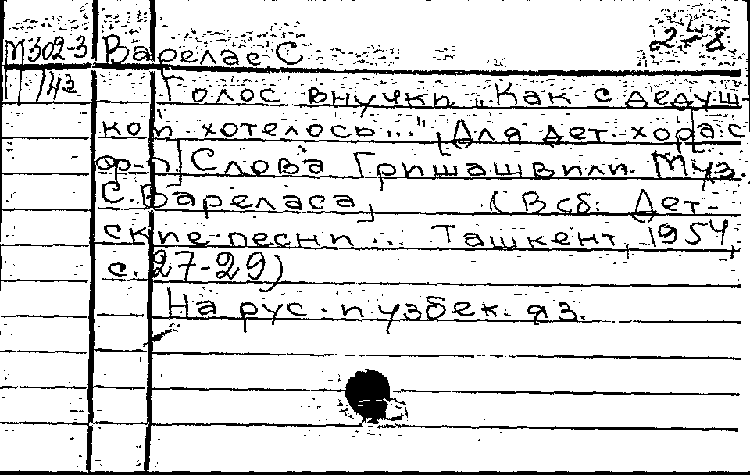 М302-3 Варелас С 2-8
1/142 Голос внучки „Как с дедуш
кой хотелось..." [Для дет. хора с
ф-п] Слова Гришашвили. Муз.
С. Вареласа] (В сб: Дет-
ские песни... Ташкент, 1954,
с. 27-29)
На рус. и узбек. яз.